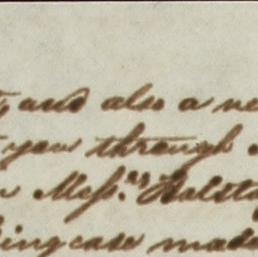 and also a
you through
Mess.rs Halsta
ing case made